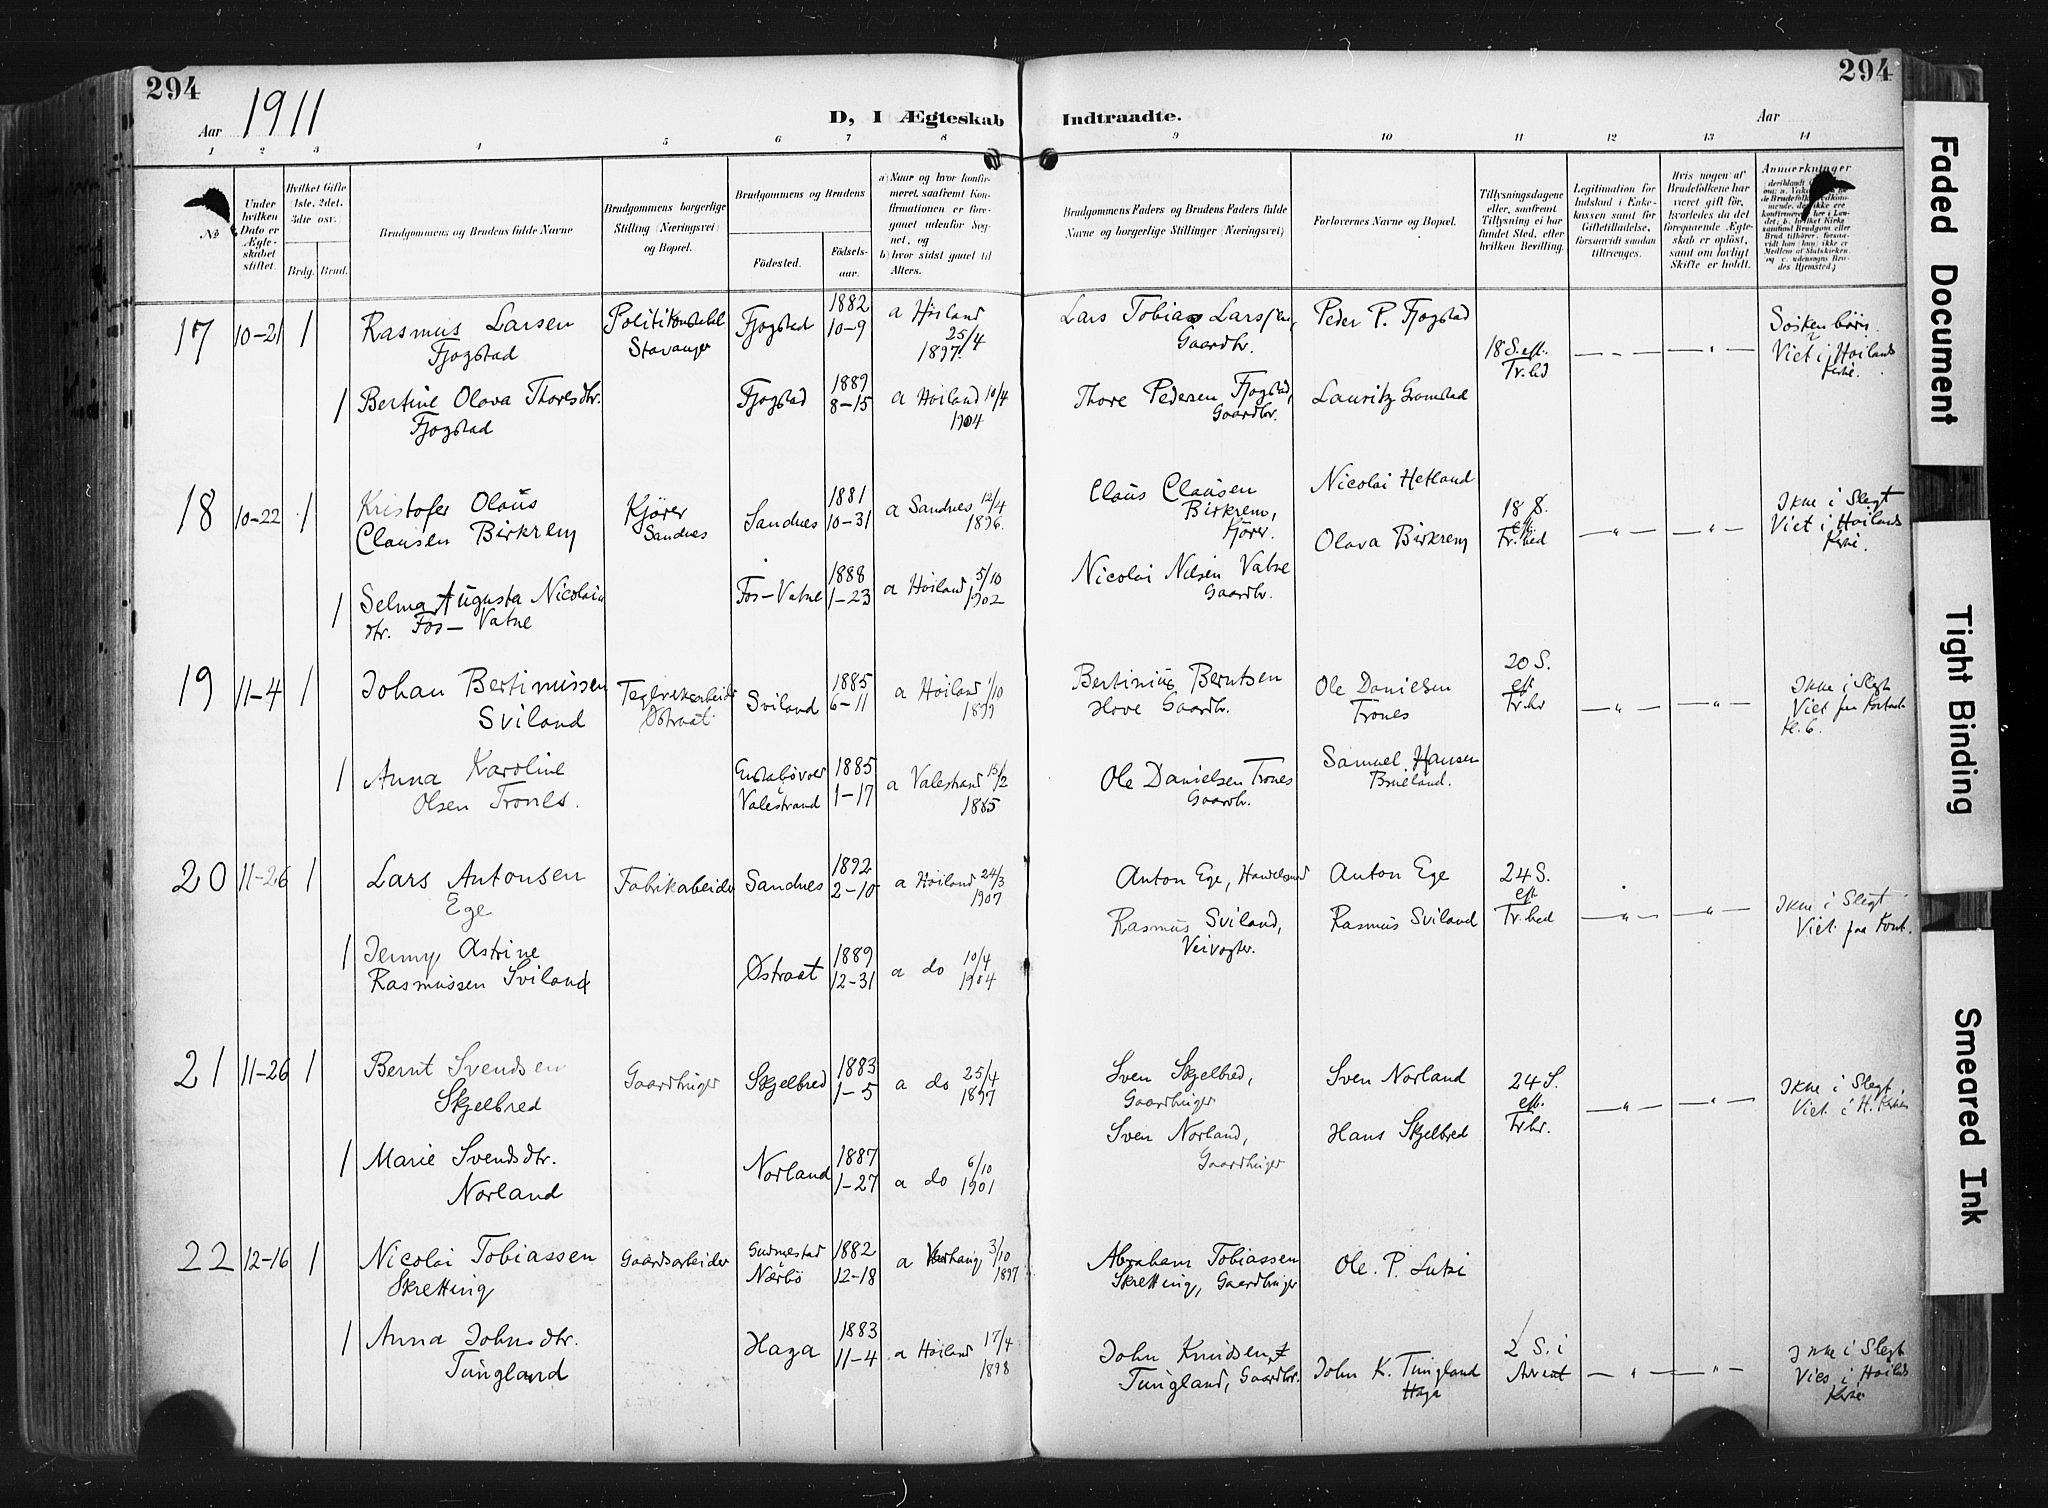 294
294
Aar 1911
D, I Ægteskab Indtraadte.
Aar
1 2 3 4 5 6 7 8 9 10 11 12 13 14
No
Under hvilken Dato er Ægteskabet stiftet.
Hvilket Gifte 1ste, 2det, 3die osv.
Brdg. Brud.
Brudgommens og Brudens fulde Navne
Brudgommens borgerlige Stilling (Næringsvei) og Bopæl.
Brudgommens og Brudens
Fødested.
Fødselsaar.
a) Naar og hvor konfirmeret, saafremt Konfirmationen er foregaaet udenfor Sognet, og
b) hvor sidst gaaet til Alters.
Brudgommens Faders og Brudens Faders fulde Navne og borgerlige Stillinger (Næringsvei)
Forlovernes Navne og Bopæl.
Tillysningsdagene eller, saafremt Tillysning ei har fundet Sted, efter hvilken Bevilling.
Legitimation for Indskud i Enkekassen samt for Giftetilladelse, forsaavidt saadan tiltrænges.
Hvis nogen af Brudefolkene har været gift før, hvorledes da det foregaaende Ægteskab er opløst, samt om lovligt Skifte er holdt.
Anmærkninger
17 10-21 1 Rasmus Larsen Fjogstad
Politikonstabel Stavanger
Fjogstad 1882 10-9 a Høiland 25/4 1897
Lars Tobias Larsen, Gaardbr.
Peder P. Fjogstad
18 S. eft. Tr.hd
Søskenbørn. Viet i Høilands Kirke.
1 Bertine Olava Thoresdtr. Fjogstad
Fjogstad 1889 8-15 a Høiland 10/4 1904
Thore Pedersen Fjogstad, Gaardbr.
Lauritz Gramstad
18 10-22 1 Kristofer Olaus Clausen Birkrem
Kjører Sandnes
Sandnes 1881 10-31 a Sandnes 12/4 1896.
Claus Clausen Birkrem, Kjører.
Nicolai Hetland
Olava Birkrem
18 S. eft. Tr.hed
Ikke i Slegt Viet i Høilands Kirke.
1 Selma Augusta Nicolaidtr. Fos-Vatne
Fos-Vatne 1888 1-23 a Høiland 5/10 1902
Nicolai Nilsen Vatne Gaardbr.
19 11-4 1 Johan Bertinussen Sviland
Teglverksarbeider Østraat
Sviland 1885 6-11 a Høiland 1/10 1899
Bertinius Berntsen Hove Gaardbr.
Ole Danielsen Trones
20 S. eft Tr.hd
Ikke i Slegt Viet paa
Kl. 6.
1 Anna Karoline Olsen Trones.
Valestrand 1885 1-17 a Valestrand 15/2 1885
Ole Danielsen Trones Gaardbr.
Samuel Hansen Brueland.
20 11-26 1 Lars Antonsen Ege
Fabrikabeider
Sandnes 1892 2-10 a Høiland 24/3 1907
Anton Ege, Handelsmd
Anton Ege
24 S. eft Tr.hed
Ikke i Slegt Viet paa Kont.
1 Jenny Astrine Rasmussen Sviland
Østraat 1889 12-31 a do 10/4 1904
Rasmus Sviland, Veivogter.
Rasmus Sviland
21 11-26 1 Bernt Svendsen Skjelbred
Gaardbruger
Skjelbred 1883 1-5 a do 25/4 1897
Sven Skjelbred, Gaardbruger
Sven Norland
24 S. eft. Trhr.
Ikke i Slegt, Viet i H. Kirken
1 Marie Svendsdtr. Norland
Norland 1887 1-27 a do 6/10 1901
Sven Norland, Gaardbruger
Hans Skjelbred
22 12-16 1 Nicolai Tobiassen Skretting
Gaardsarbeider
Gudmestad Nærbø 1882 12-18 a Varhaug 3/10 1897
Abraham Tobiassen Skretting, Gaardbruger
Ole. P. Lutsi
2 S. i Advent
Ikke i Slegt Viet i Høilands Kirke
1 Anna Johnsdtr. Tungland
Haga 1883 11-4 a Høiland 17/4 1898
John Knudsen Tungland, Gaardbr.
John K. Tungland Haga
Faded Document
Tight Binding
Smeared Ink